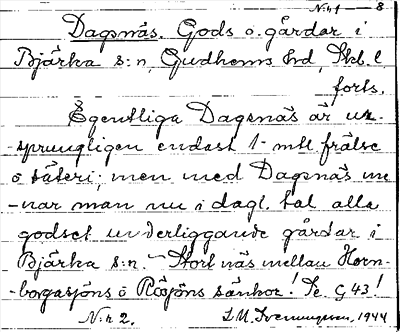 N:r 1 — 8
Dagsnäs. Gods o. gårdar i
Bjärka s:n, Gudhems hd, Skb. l.
forts.
Egentliga Dagsnäs är ur-
-sprungligen endast 1 mtl frälse
o säteri; men med Dagsnäs me-
-nar man nu i dagl. tal alla
godset underliggande gårdar i
Bjärka s:n. — Stort näs mellan Horn-
-borgasjöns o Rösjöns sänkor! Se G 43!
N:r 2. 1944